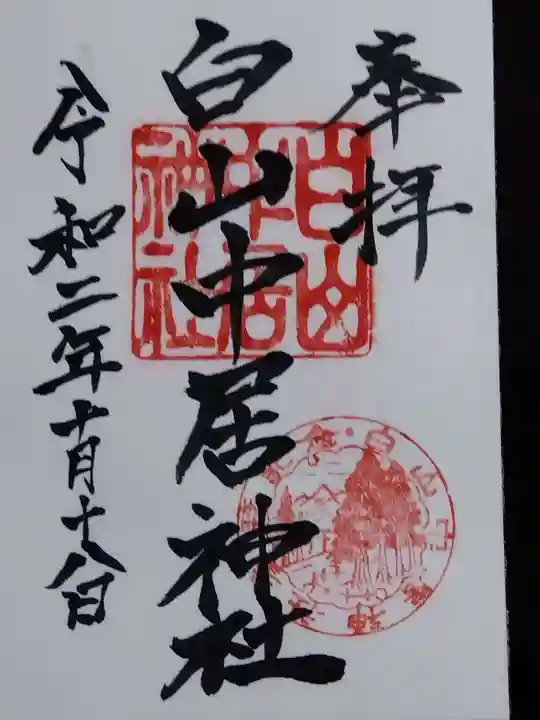 奉拝
白山中居神社
令和二年十月十八日
白山
中居
神社